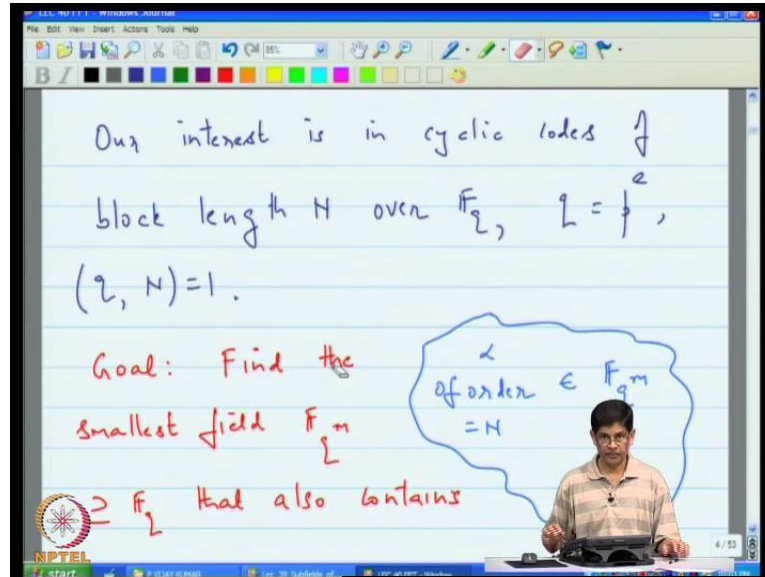 LEC 40 FFT - Windows Journal
File Edit View Insert Actions Tools Help
85%
B I
Our interest is in cyclic codes of
block length N over F_q, q = p^e,
(q, N) = 1.
Goal: Find the
smallest field F_q^m
⊇ F_q that also contains
α
of order ∈ F_q^m
= N
4 / 53
NPTEL
start
P VIJAY KUMAR
LEC 40 FFT - Window